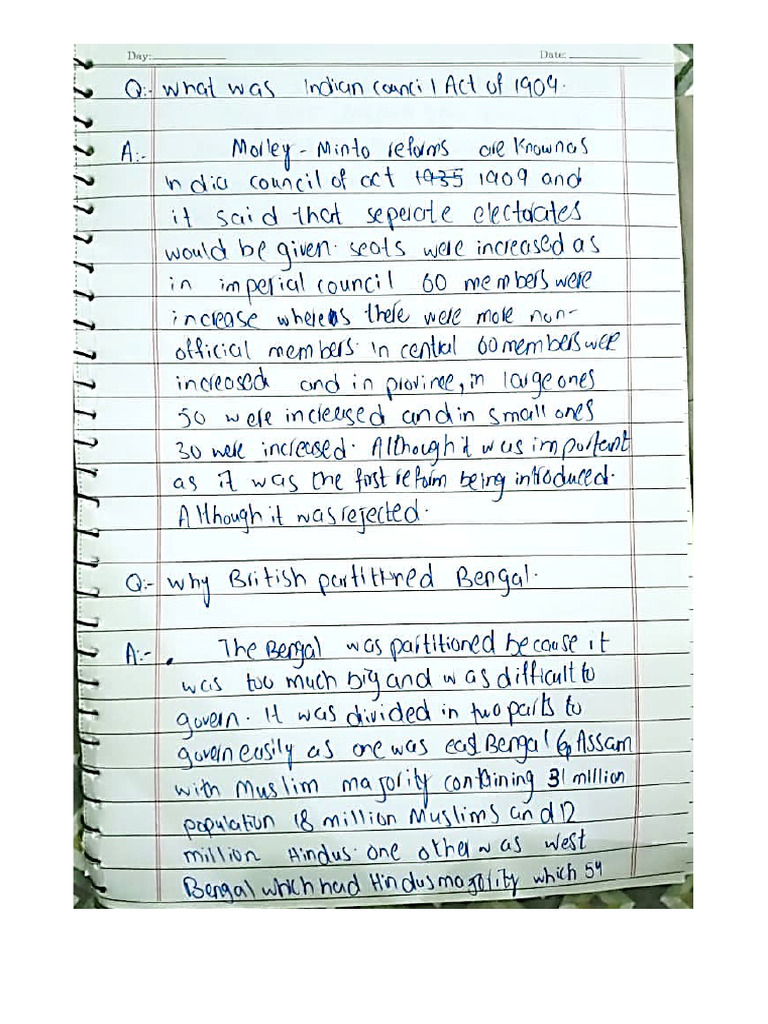 Day:
Date:
Q:- what was Indian council Act of 1909.
A:- Morley - Minto reforms are known as
India council of act 1935 1909 and
it said that seperate electorates
would be given. seats were increased as
in imperial council 60 members were
increase whereas there were more non-
official members. In central 60 members were
increased and in province, in large ones
50 were increased and in small ones
30 were increased. Although it was important
as it was the first reform being introduced.
Although it was rejected.
Q:- why British partitioned Bengal.
A:- . The Bengal was partitioned because it
was too much big and was difficult to
govern. It was divided in two parts to
govern easily as one was east Bengal & Assam
with Muslim majority containing 31 million
population 18 million Muslims and 12
million Hindus. one other was West
Bengal which had Hindus majority which 54